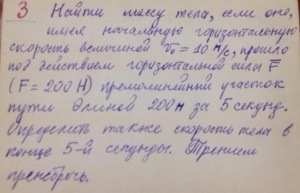 3 Найти массу тела, если оно,
имея начальную горизонтальную
скорость величиной V₀ = 10 м/с, прошло
под действием горизонтальной силы F̅
(F = 200 Н) прямолинейный участок
пути длиной 200 м за 5 секунд.
Определить также скорость тела в
конце 5-й секунды. Трением
пренебречь.